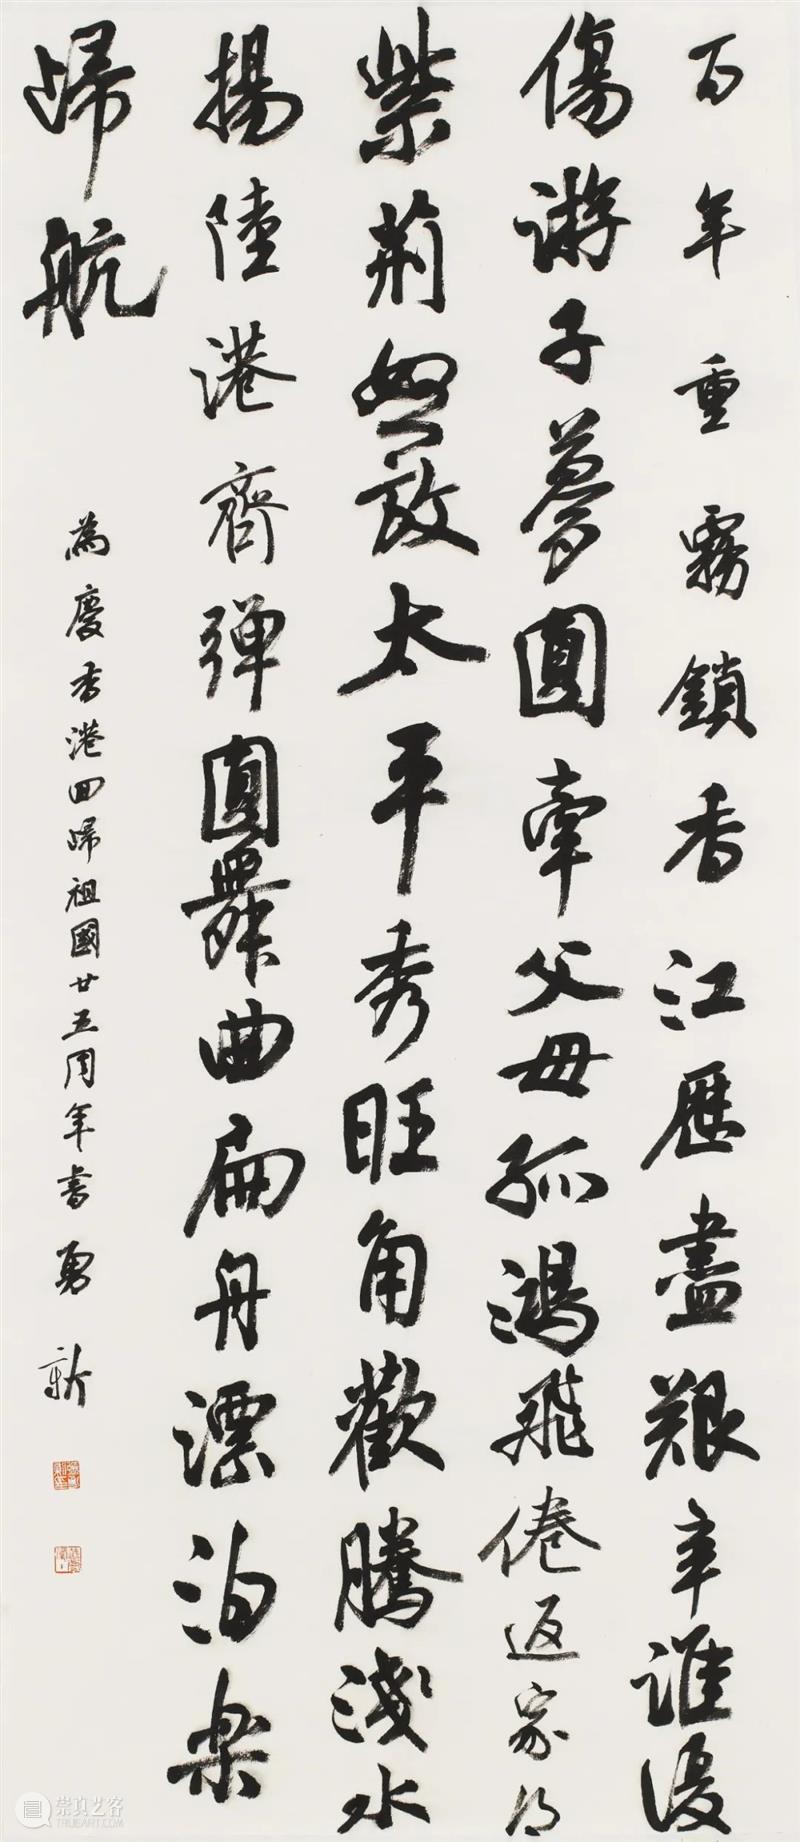 百年重霧鎖香江歷盡艱辛誰
傷游子夢圓牽父母孤鴻飛倦返家鄉
紫荊怒放太平秀旺角歡騰淺水
揚陸港齊弹圓舞曲扁舟漂泊楽
歸航
為慶香港回歸祖國廿五周年書 勇新
崇真艺客
TRUEART.COM